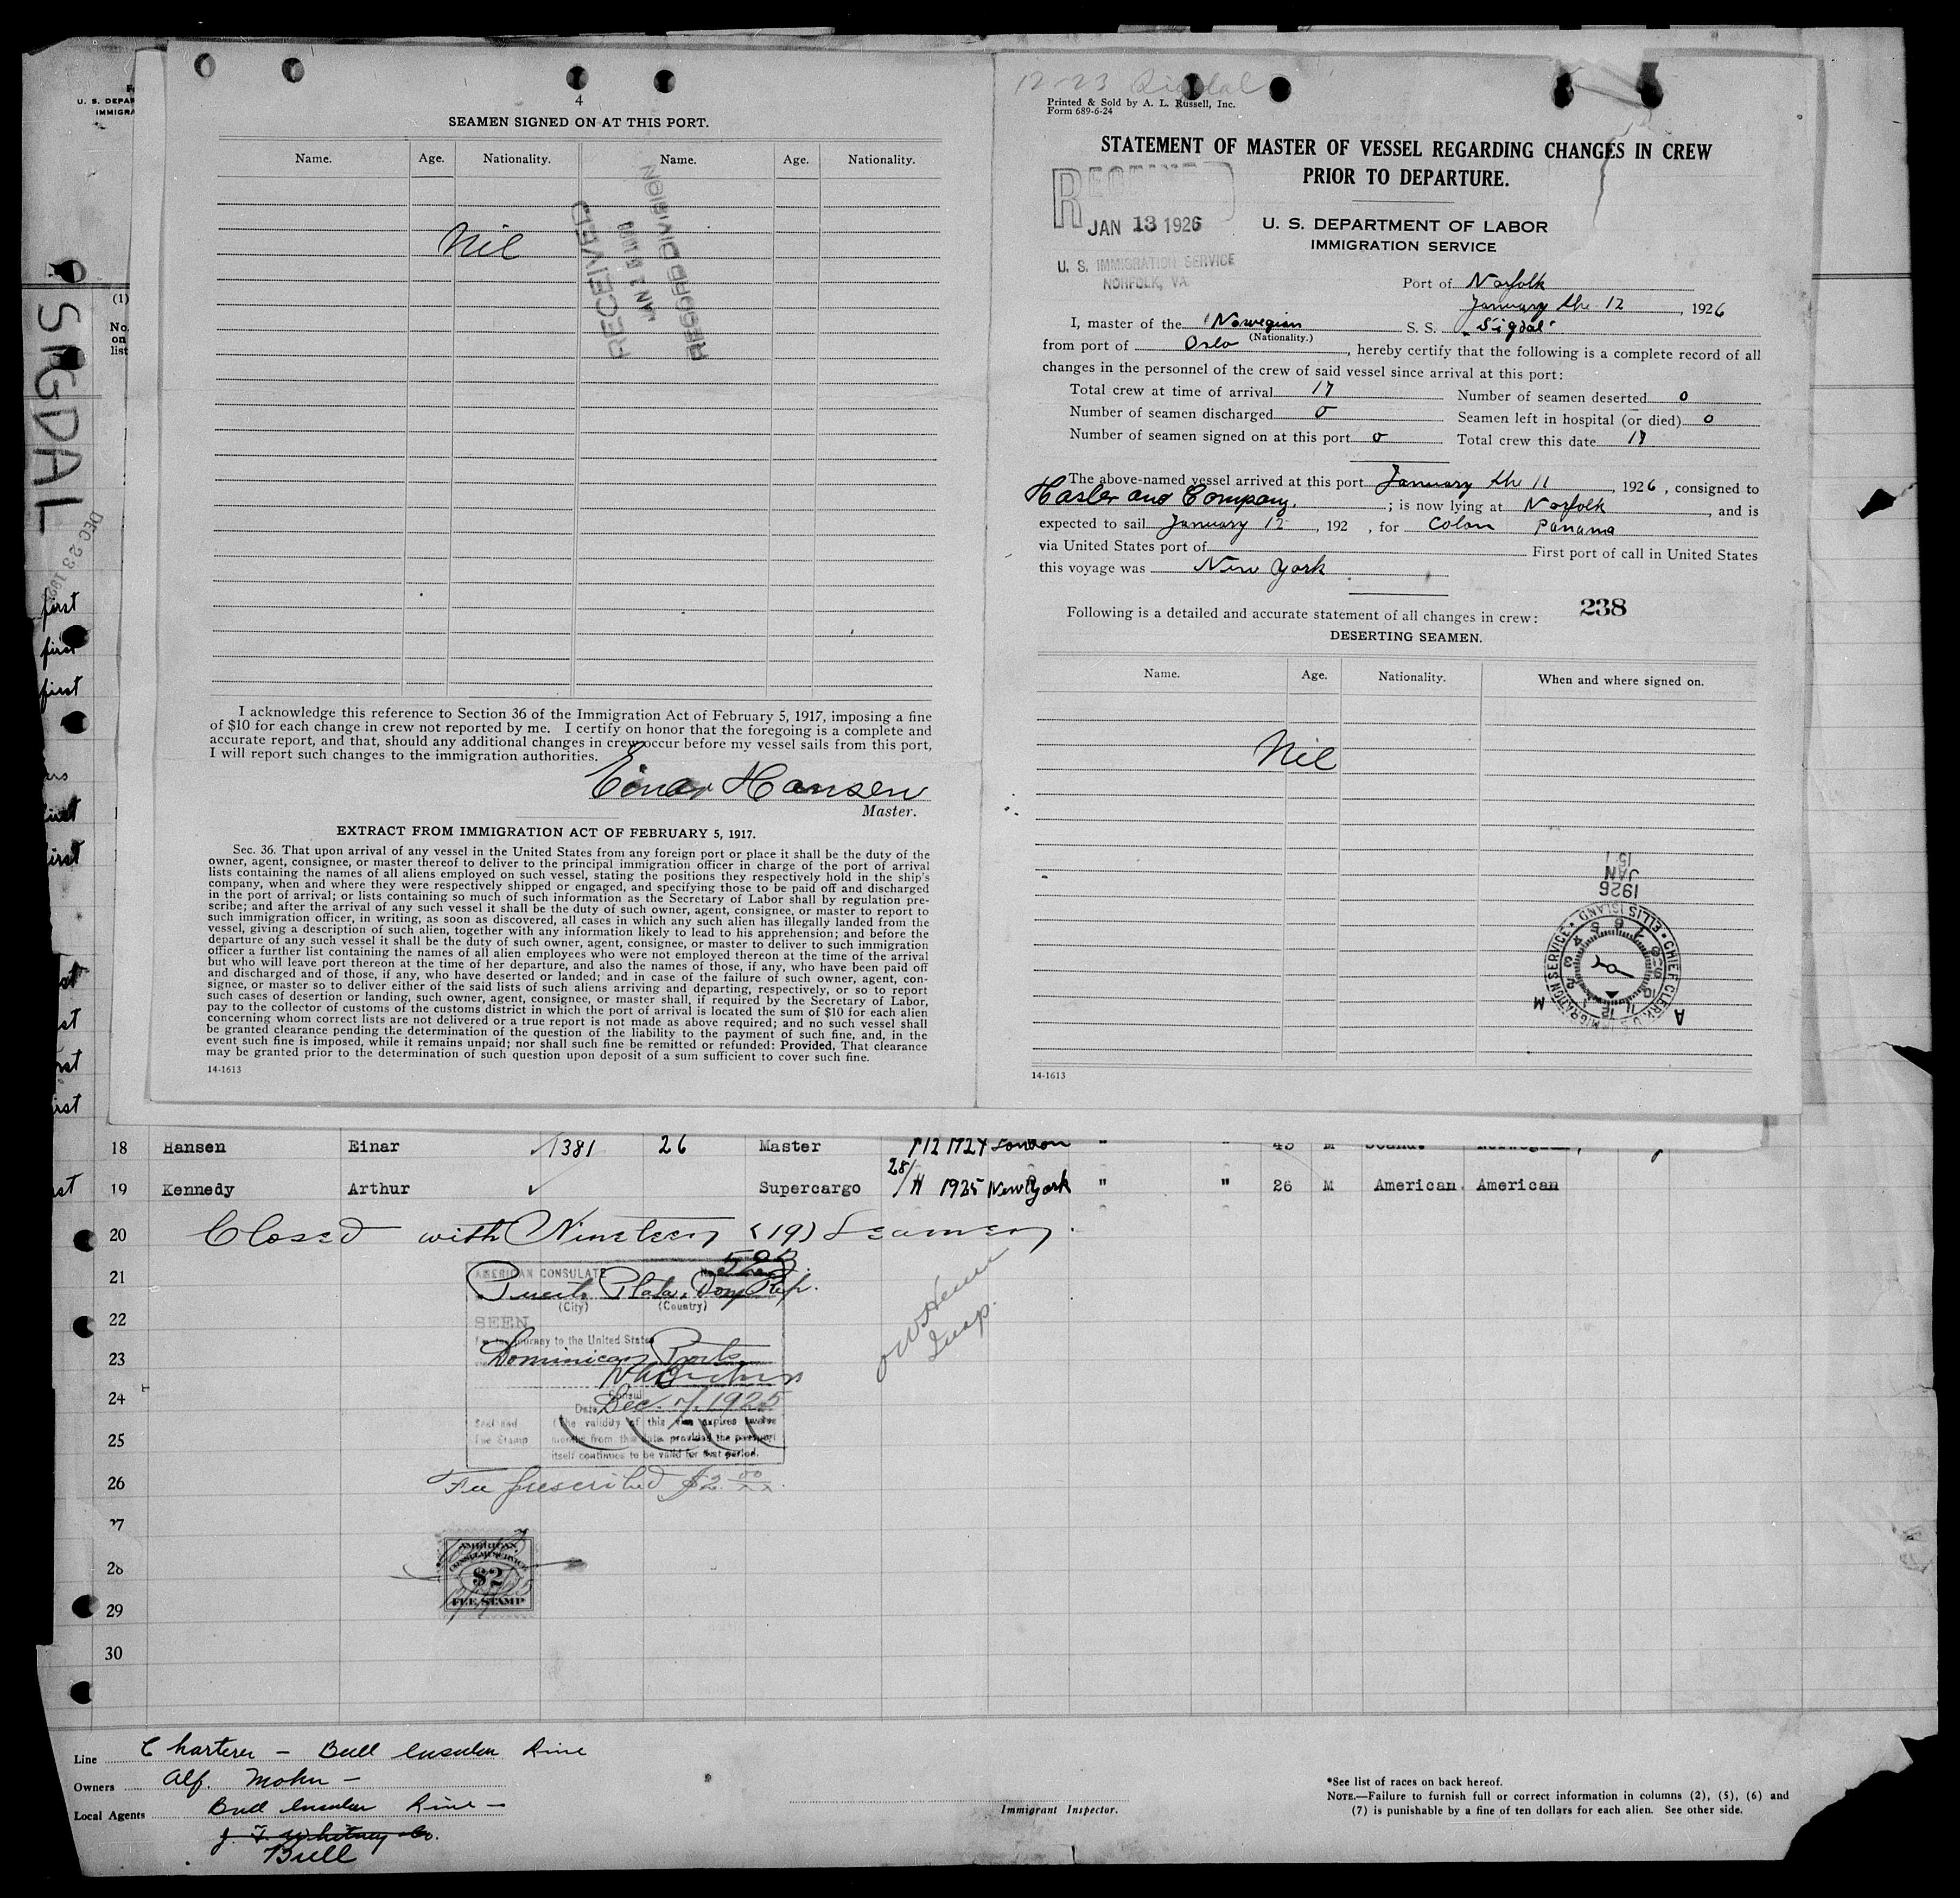 4
SEAMEN SIGNED ON AT THIS PORT.
Name. Age. Nationality. Name. Age. Nationality.
Nil
RECEIVED
JAN
RECORD DIVISION
I acknowledge this reference to Section 36 of the Immigration Act of February 5, 1917, imposing a fine
of $10 for each change in crew not reported by me. I certify on honor that the foregoing is a complete and
accurate report, and that, should any additional changes in crew occur before my vessel sails from this port,
I will report such changes to the immigration authorities.
Einar Hansen
Master.
EXTRACT FROM IMMIGRATION ACT OF FEBRUARY 5, 1917.
Sec. 36. That upon arrival of any vessel in the United States from any foreign port or place it shall be the duty of the
owner, agent, consignee, or master thereof to deliver to the principal immigration officer in charge of the port of arrival
lists containing the names of all aliens employed on such vessel, stating the positions they respectively hold in the ship's
company, when and where they were respectively shipped or engaged, and specifying those to be paid off and discharged
in the port of arrival; or lists containing so much of such information as the Secretary of Labor shall by regulation pre-
scribe; and after the arrival of any such vessel it shall be the duty of such owner, agent, consignee, or master to report to
such immigration officer, in writing, as soon as discovered, all cases in which any such alien has illegally landed from the
vessel, giving a description of such alien, together with any information likely to lead to his apprehension; and before the
departure of any such vessel it shall be the duty of such owner, agent, consignee, or master to deliver to such immigration
officer a further list containing the names of all alien employees who were not employed thereon at the time of the arrival
but who will leave port thereon at the time of her departure, and also the names of those, if any, who have been paid off
and discharged and of those, if any, who have deserted or landed; and in case of the failure of such owner, agent, con-
signee, or master so to deliver either of the said lists of such aliens arriving and departing, respectively, or so to report
such cases of desertion or landing, such owner, agent, consignee, or master shall, if required by the Secretary of Labor,
pay to the collector of customs of the customs district in which the port of arrival is located the sum of $10 for each alien
concerning whom correct lists are not delivered or a true report is not made as above required; and no such vessel shall
be granted clearance pending the determination of the question of the liability to the payment of such fine, and, in the
event such fine is imposed, while it remains unpaid; nor shall such fine be remitted or refunded: Provided, That clearance
may be granted prior to the determination of such question upon deposit of a sum sufficient to cover such fine.
14-1613
12-23 Sigdal
Printed & Sold by A. L. Russell, Inc.
Form 689-6-24
STATEMENT OF MASTER OF VESSEL REGARDING CHANGES IN CREW
PRIOR TO DEPARTURE.
RECEIVED
JAN 13 1926
U. S. IMMIGRATION SERVICE
NORFOLK, VA.
U. S. DEPARTMENT OF LABOR
IMMIGRATION SERVICE
Port of Norfolk
January the 12, 1926
I, master of the Norwegian S. S. "Sigdal"
(Nationality.)
from port of Oslo, hereby certify that the following is a complete record of all
changes in the personnel of the crew of said vessel since arrival at this port:
Total crew at time of arrival 17 Number of seamen deserted 0
Number of seamen discharged 0 Seamen left in hospital (or died) 0
Number of seamen signed on at this port 0 Total crew this date 17
The above-named vessel arrived at this port January the 11, 1926, consigned to
Hasler and Company. ; is now lying at Norfolk, and is
expected to sail January 12, 192 , for Colon Panama
via United States port of First port of call in United States
this voyage was New York
Following is a detailed and accurate statement of all changes in crew: 238
DESERTING SEAMEN.
Name. Age. Nationality. When and where signed on.
Nil
15
JAN
1926
CHIEF CLERK, U. S. IMMIGRATION SERVICE ELLIS ISLAND
A M
14-1613
U. S. DEPAR
IMMIGRA
(1)
No.
on
list
SIGDAL
DEC 23 192
first
first
first
first
first
18 Hansen Einar 1381 26 Master London " " 45 M Scand. Norwegian
19 Kennedy Arthur Supercargo 28/ 1925 New York " " 26 M American American
20 Closed with Nineteen (19) Seamen.
21
22
23
24
25
26
27
28
29
30
AMERICAN CONSULATE No. 593
Puerto Plata, Dom. Rep.
(City) (Country)
SEEN
For the journey to the United States
Dominican Ports
Consul
Date Dec. 7, 1925
Seal and
Fee Stamp
The validity of this visa expires twelve
months from this date provided the passport
itself continues to be valid for that period.
Fee prescribed $2.00
AMERICAN
CONSULAR SERVICE
$2
FEE STAMP
Insp.
Line Charterer - Bull Insular Line
Owners Alf. Mohn -
Local Agents Bull Insular Line -
J. F. Whitney Co.
Bull
Immigrant Inspector.
*See list of races on back hereof.
NOTE.—Failure to furnish full or correct information in columns (2), (5), (6) and
(7) is punishable by a fine of ten dollars for each alien. See other side.